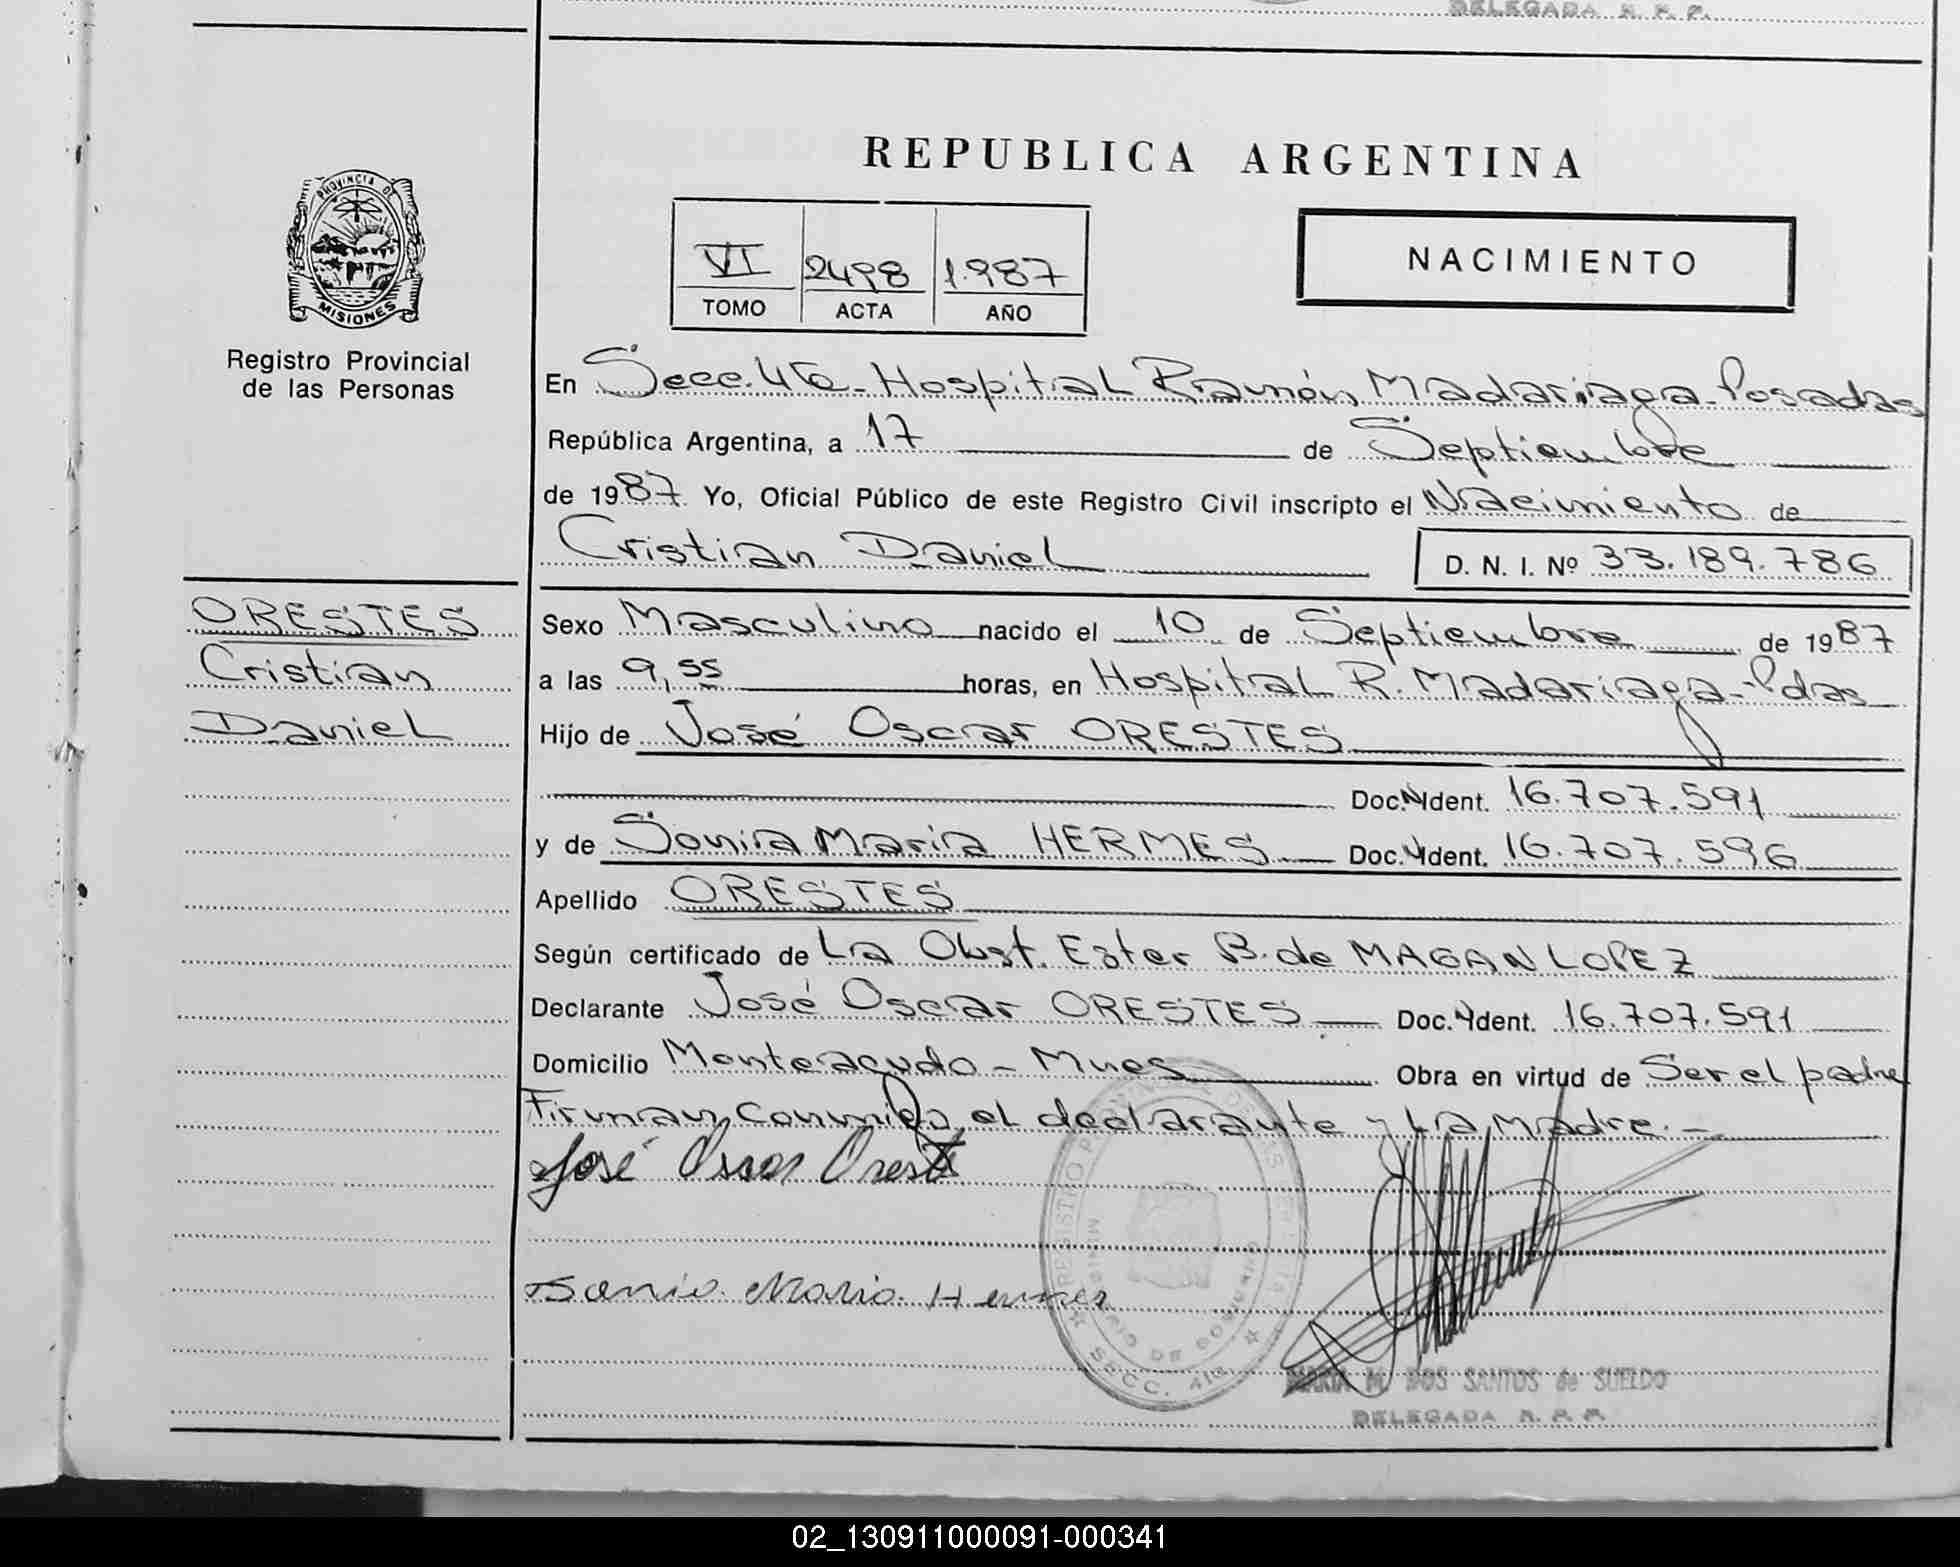 DELEGADA R. P. P.
REPUBLICA ARGENTINA
PROVINCIA DE
MISIONES
Registro Provincial
de las Personas
VI 2498 1.987
TOMO ACTA AÑO
NACIMIENTO
En Secc. 4ta - Hospital Ramón Madariaga - Posadas
República Argentina, a 17 de Septiembre
de 1987 Yo, Oficial Público de este Registro Civil inscripto el Nacimiento de
Cristian Daniel D. N. I. Nº 33.189.786
ORESTES
Cristian
Daniel
Sexo Masculino nacido el 10 de Septiembre de 1987
a las 9,55 horas, en Hospital R. Madariaga - Pdas
Hijo de José Oscar ORESTES
Doc. Ident. 16.707.591
y de Sonia Maria HERMES Doc. Ident. 16.707.596
Apellido ORESTES
Según certificado de La Obst. Ester B. de MAGAN LOPEZ
Declarante José Oscar ORESTES Doc. Ident. 16.707.591
Domicilio Monteagudo - Mnes Obra en virtud de Ser el padre
Firman conmigo el declarante y La Madre. -
José Oscar Oreste
Sonia Maria Hermes
SECC. 4ta
MARIA M. DOS SANTOS de SUELDO
DELEGADA R. P. P.
02_130911000091-000341